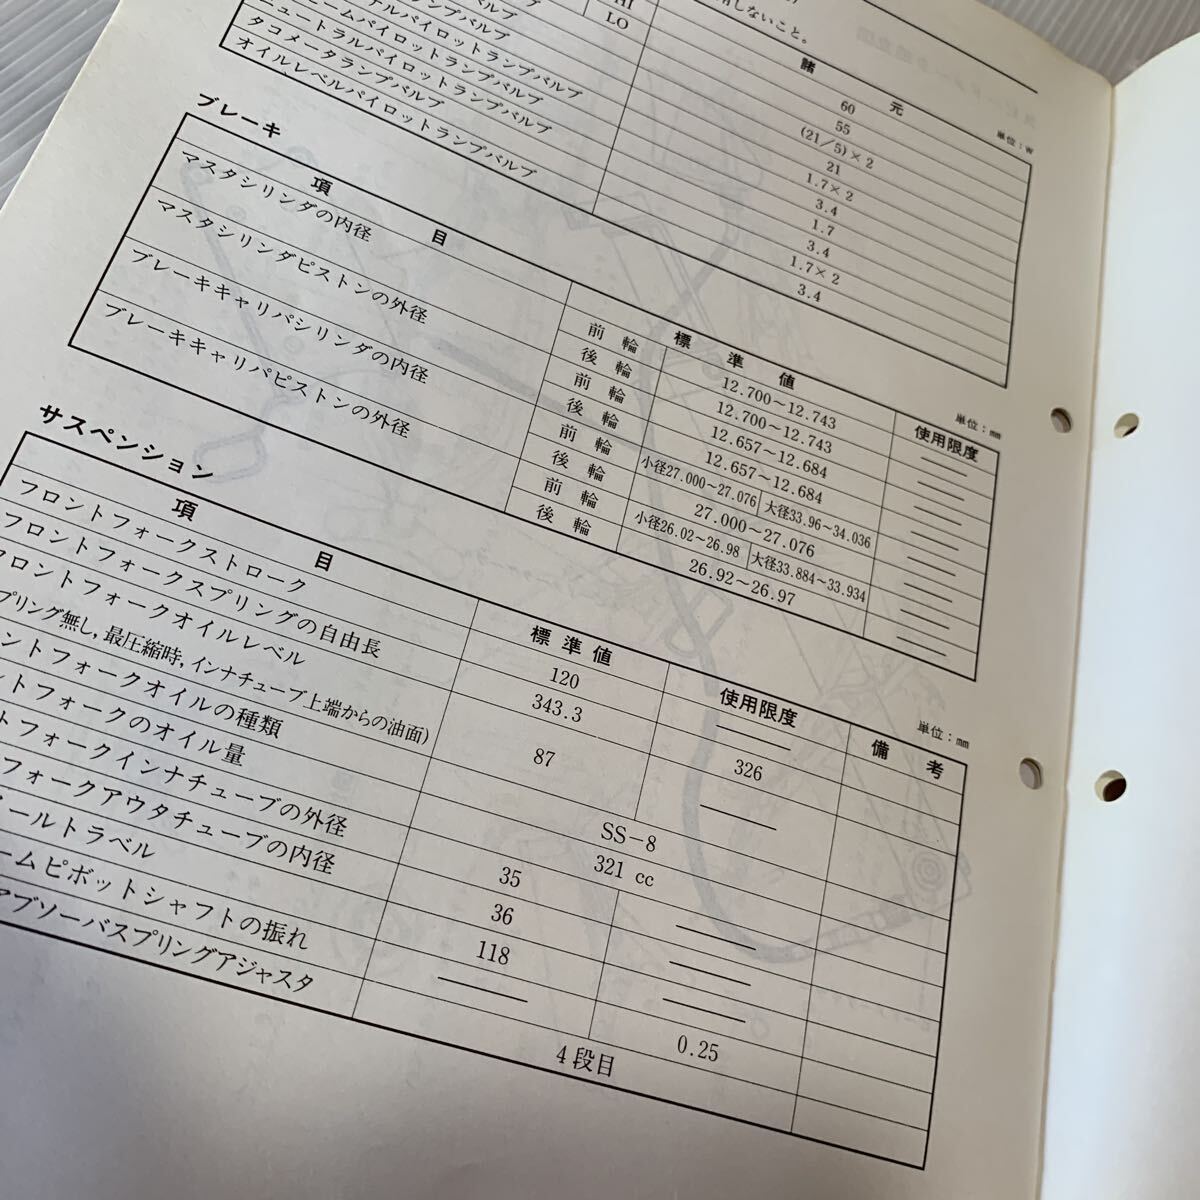 用しないこと。
諸 元
単位：W
HI 60
LO 55
(21/5)×2
21
1.7×2
3.4
1.7
ニュートラルパイロットランプバルブ 3.4
タコメータランプバルブ 1.7×2
オイルレベルパイロットランプバルブ 3.4
ブレーキ
単位：mm
項 目 標 準 値 使用限度
マスタシリンダの内径 前 輪 12.700～12.743 ――
後 輪 12.700～12.743 ――
マスタシリンダピストンの外径 前 輪 12.657～12.684 ――
後 輪 12.657～12.684 ――
ブレーキキャリパシリンダの内径 前 輪 小径27.000～27.076 大径33.96～34.036 ――
後 輪 27.000～27.076 ――
ブレーキキャリパピストンの外径 前 輪 小径26.02～26.98 大径33.884～33.934 ――
後 輪 26.92～26.97 ――
サスペンション
単位：mm
項 目 標 準 値 使用限度 備 考
フロントフォークストローク 120 ――
フロントフォークスプリングの自由長 343.3 326
フロントフォークオイルレベル
プリング無し,最圧縮時,インナチューブ上端からの油面) 87 ――
ントフォークオイルの種類 SS-8
トフォークのオイル量 321 cc
フォークインナチューブの外径 35 ――
フォークアウタチューブの内径 36 ――
ールトラベル 118 ――
ームピボットシャフトの振れ ―― 0.25
アブソーバスプリングアジャスタ 4段目